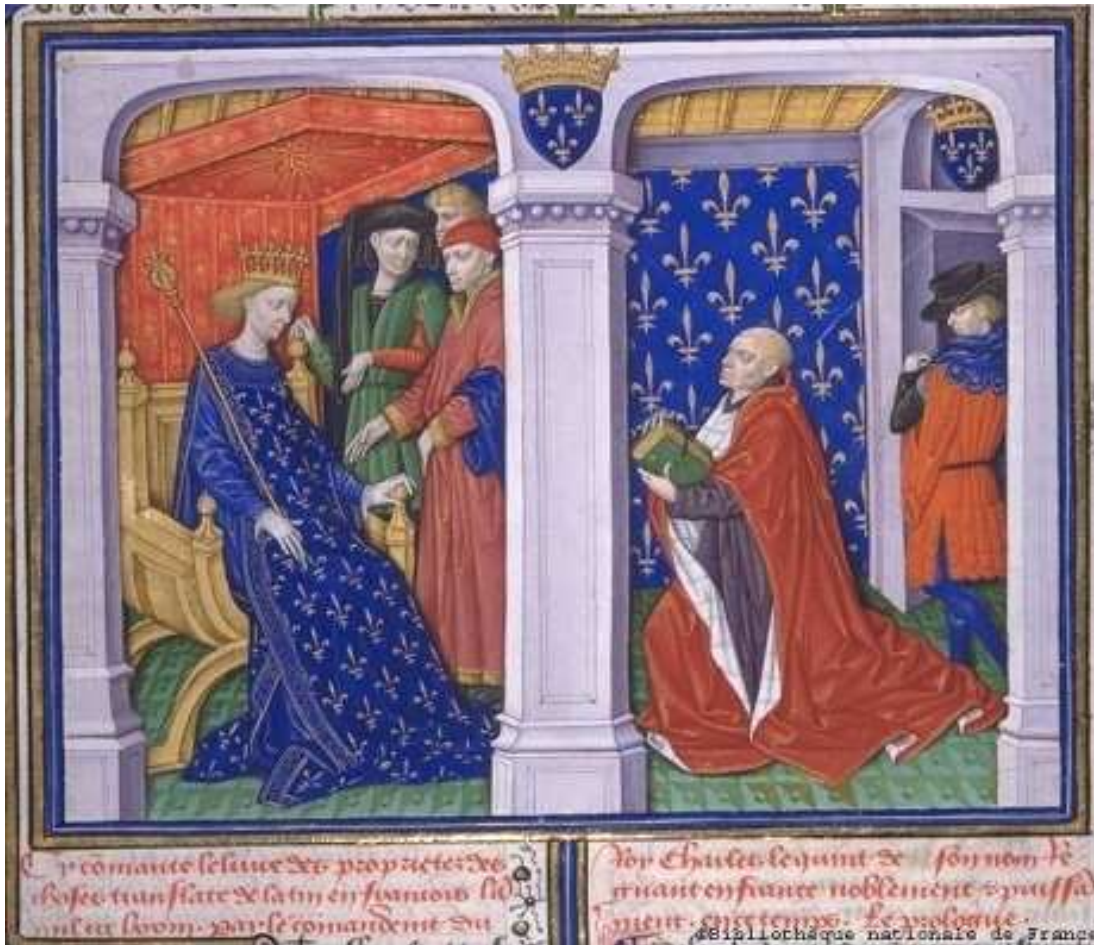 Cy comance le liure des proprietes des
choses translate de latin en francois
par le comandement du
Roy Charles le quint de son nom Re
gnant en france noblement & puissã
ment en ce temps. Le prologue.
©Bibliothèque nationale de France